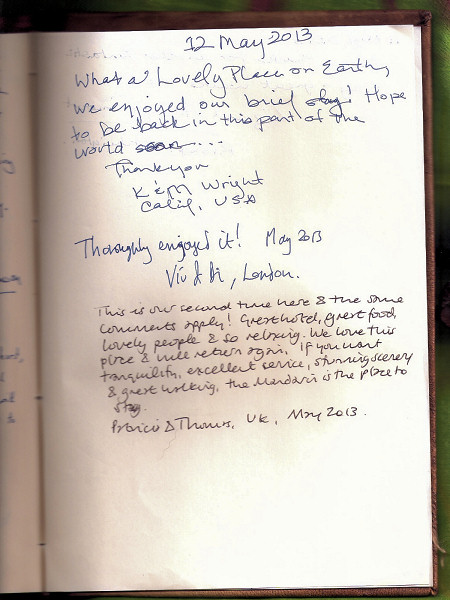 12 May 2013
What a Lovely Place on Earth,
we enjoyed our brief stay! Hope
to be back in this part of the
world soon...
Thank you
K & M Wright
Calif, USA
Thoroughly enjoyed it! May 2013
Viv & Di, London.
This is our second time here & the same
comments apply! Great hotel, great food,
lovely people & so relaxing. We love this
place & will return again. If you want
tranquility, excellent service, stunning scenery
& great walking, the Mandarin is the place to
stay.
Thomas, UK, May 2013.